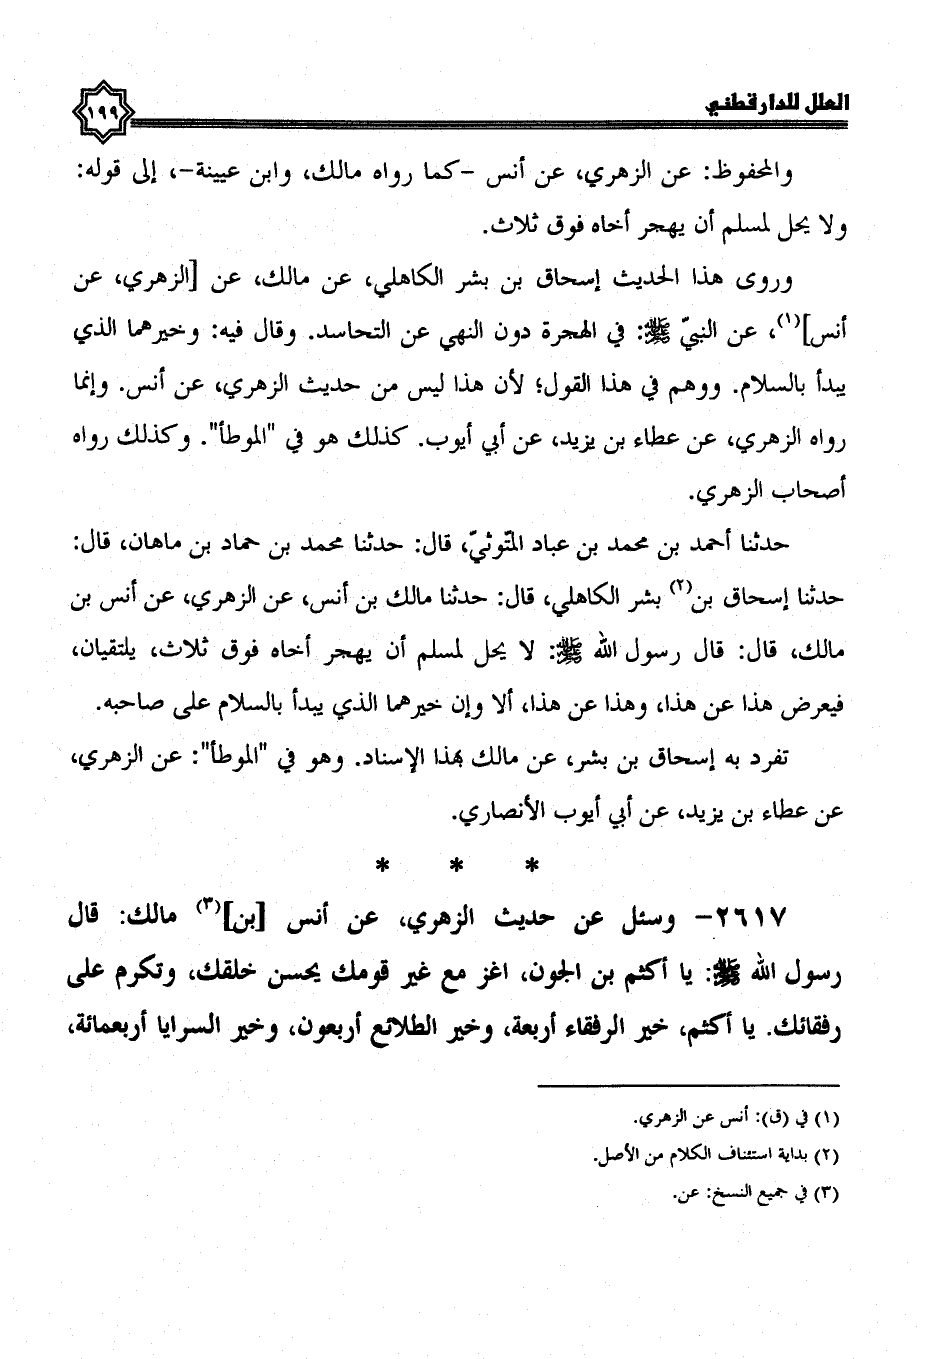 العلل للدارقطني
١٩٩
والمحفوظ: عن الزهري، عن أنس -كما رواه مالك، وابن عيينة-، إلى قوله:
ولا يحل لمسلم أن يهجر أخاه فوق ثلاث.
وروى هذا الحديث إسحاق بن بشر الكاهلي، عن مالك، عن [الزهري، عن
أنس](١)، عن النبيّ ﷺ: في الهجرة دون النهي عن التحاسد. وقال فيه: وخيرهما الذي
يبدأ بالسلام. ووهم في هذا القول؛ لأن هذا ليس من حديث الزهري، عن أنس. وإنما
رواه الزهري، عن عطاء بن يزيد، عن أبي أيوب. كذلك هو في "الموطأ". وكذلك رواه
أصحاب الزهري.
حدثنا أحمد بن محمد بن عباد المتّوثيّ، قال: حدثنا محمد بن حماد بن ماهان، قال:
حدثنا إسحاق بن(٢) بشر الكاهلي، قال: حدثنا مالك بن أنس، عن الزهري، عن أنس بن
مالك، قال: قال رسول الله ﷺ: لا يحل لمسلم أن يهجر أخاه فوق ثلاث، يلتقيان،
فيعرض هذا عن هذا، وهذا عن هذا، ألا وإن خيرهما الذي يبدأ بالسلام على صاحبه.
تفرد به إسحاق بن بشر، عن مالك بهذا الإسناد. وهو في "الموطأ": عن الزهري،
عن عطاء بن يزيد، عن أبي أيوب الأنصاري.
* * *
٢٦١٧- وسئل عن حديث الزهري، عن أنس [بن](٣) مالك: قال
رسول الله ﷺ: يا أكثم بن الجون، اغز مع غير قومك يحسن خلقك، وتكرم على
رفقائك. يا أكثم، خير الرفقاء أربعة، وخير الطلائع أربعون، وخير السرايا أربعمائة،
(١) في (ق): أنس عن الزهري.
(٢) بداية استئناف الكلام من الأصل.
(٣) في جميع النسخ: عن.